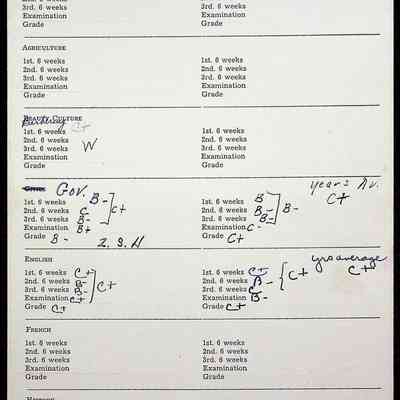 3rd. 6 weeks 3rd. 6 weeks
Examination Examination
Grade Grade
AGRICULTURE
1st. 6 weeks 1st. 6 weeks
2nd. 6 weeks 2nd. 6 weeks
3rd. 6 weeks 3rd. 6 weeks
Examination Examination
Grade Grade
BEAUTY CULTURE
C+
1st. 6 weeks 1st. 6 weeks
2nd. 6 weeks 2nd. 6 weeks
3rd. 6 weeks W 3rd. 6 weeks
Examination Examination
Grade Grade
Gov. years Av.
1st. 6 weeks B- 1st. 6 weeks B C+
2nd. 6 weeks C C+ 2nd. 6 weeks B- B-
3rd. 6 weeks B- 3rd. 6 weeks B-
Examination B+ Examination C-
Grade B- Grade C+
ENGLISH yrs average
1st. 6 weeks C+ 1st. 6 weeks C+ C+
2nd. 6 weeks B- C+ 2nd. 6 weeks B- C+
3rd. 6 weeks B- 3rd. 6 weeks C
Examination C+ Examination B-
Grade C+ Grade C+
FRENCH
1st. 6 weeks 1st. 6 weeks
2nd. 6 weeks 2nd. 6 weeks
3rd. 6 weeks 3rd. 6 weeks
Examination Examination
Grade Grade